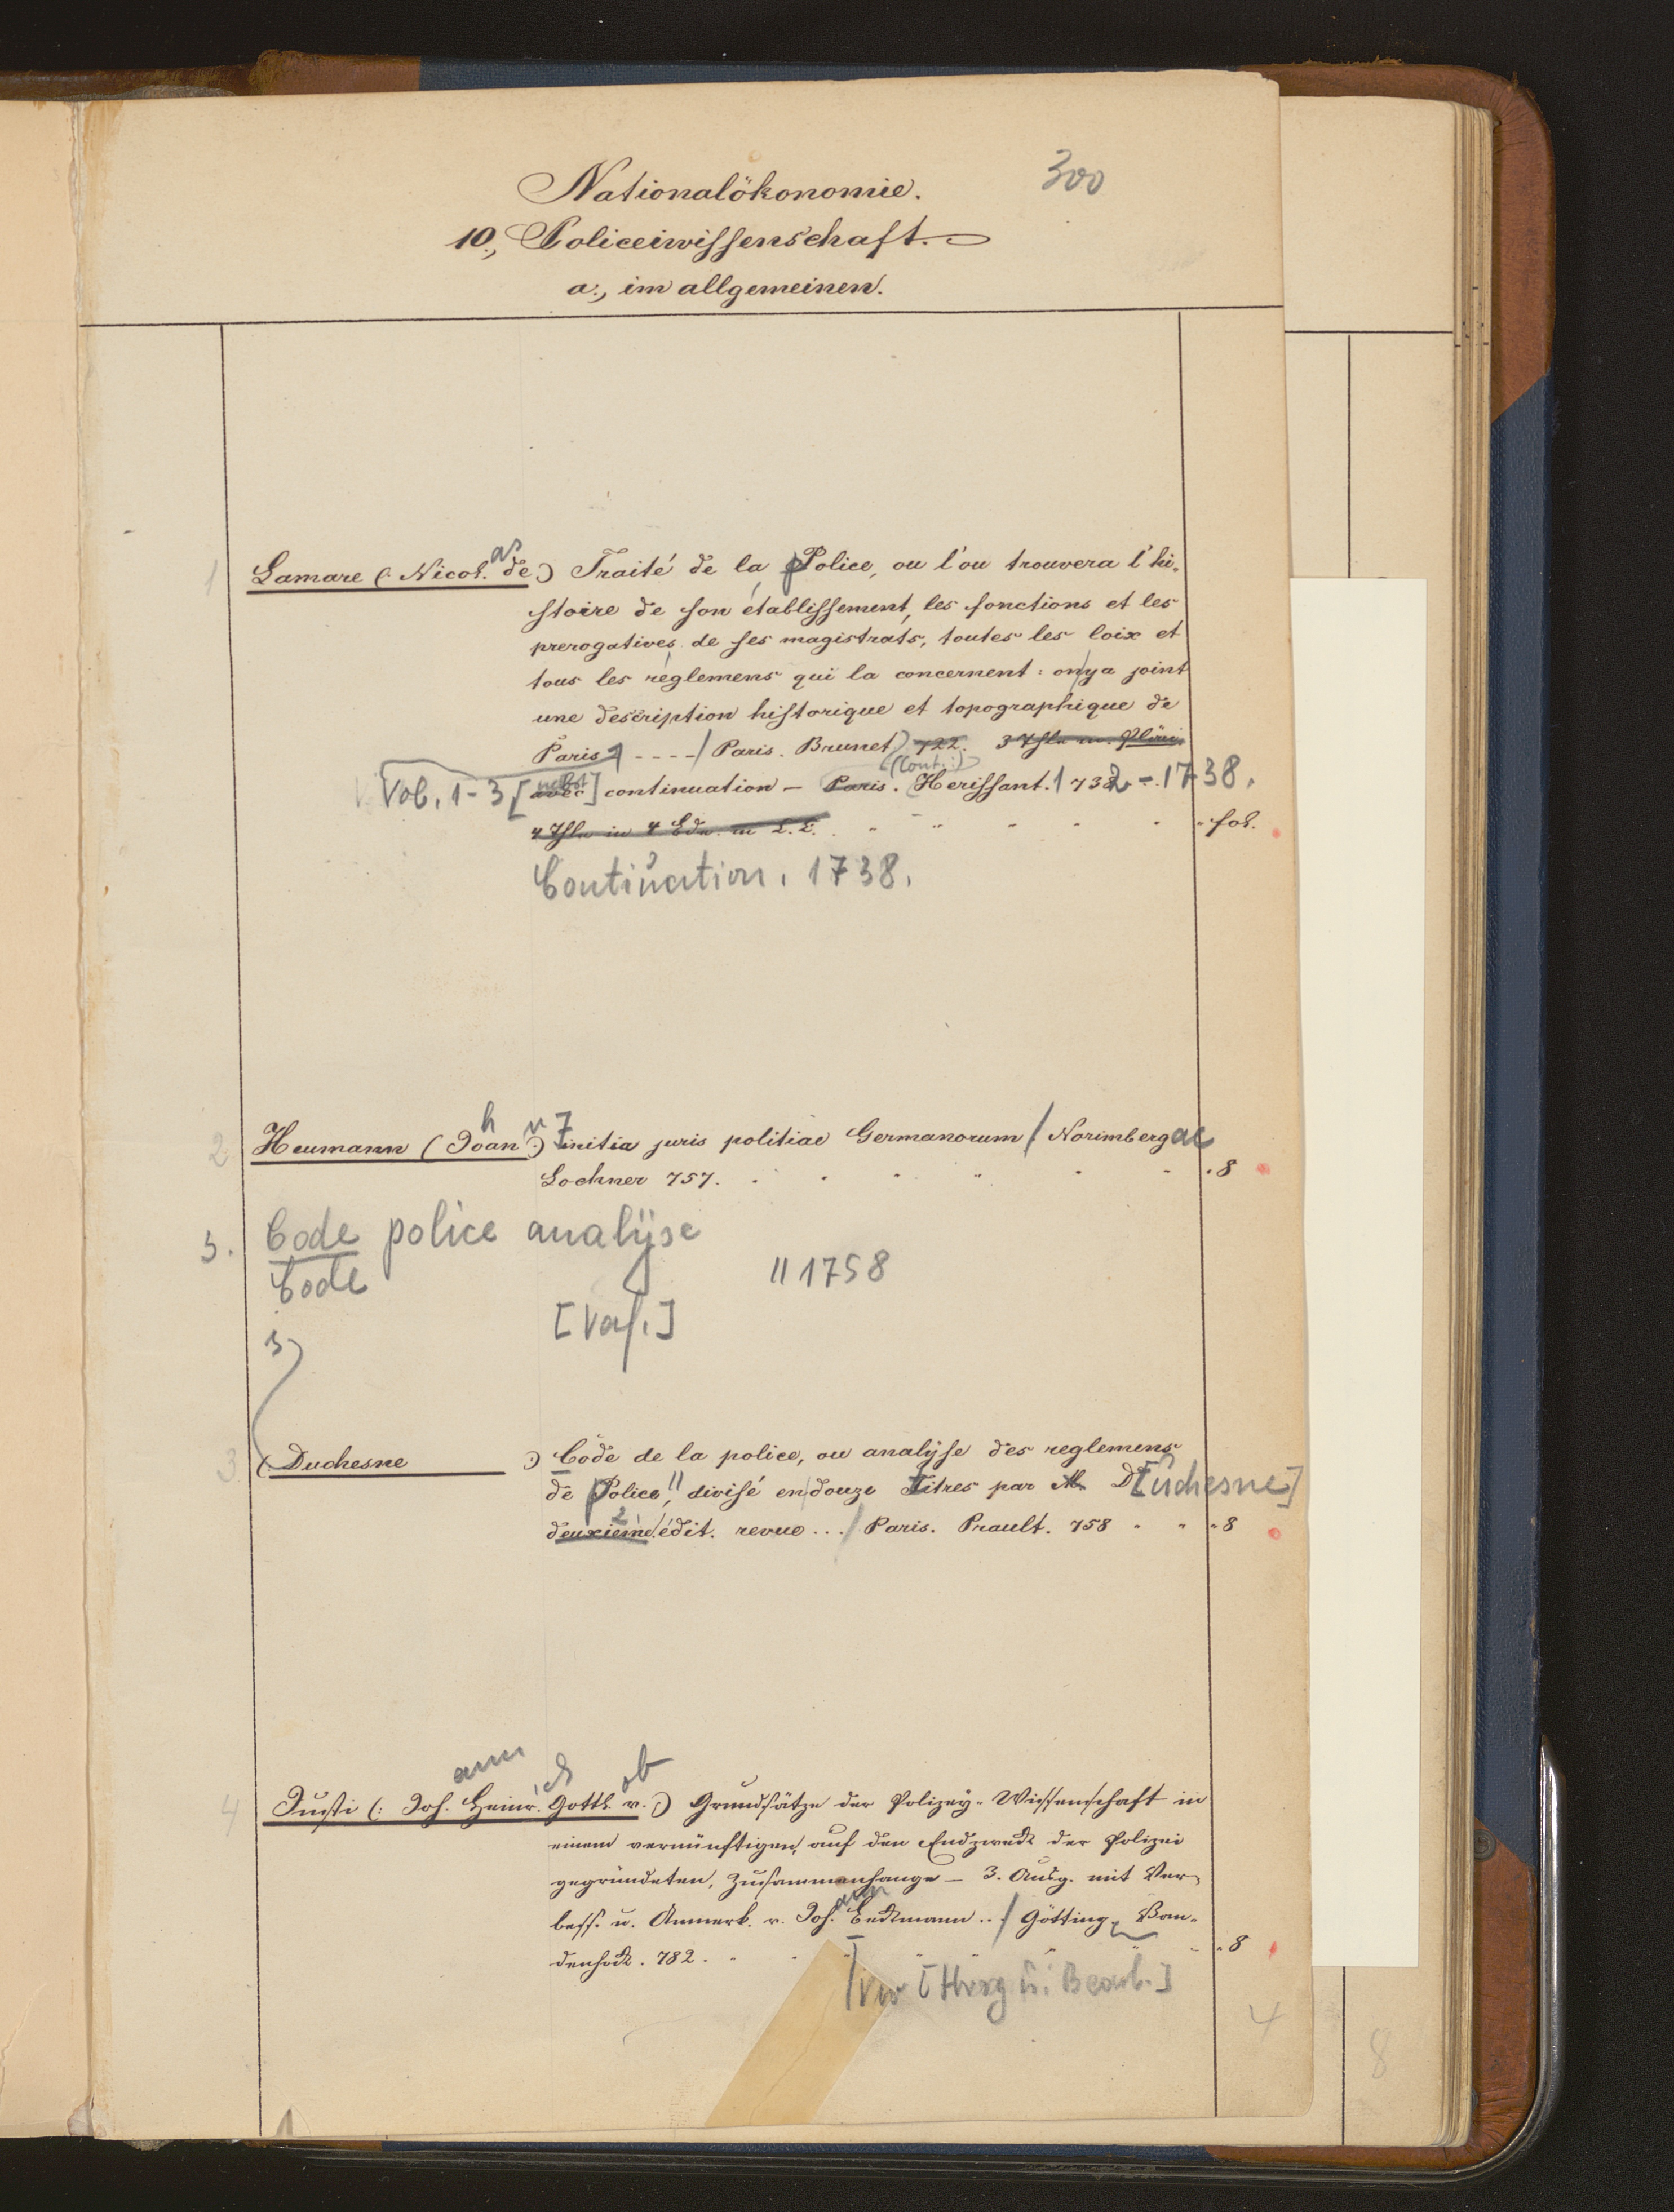 300
Nationalökonomie.
10., Policeiwissenschaft.
a., im allgemeinen.
1 Lamare (: Nicol.as de:) Traité de la Police, ou l'ou trouvera l'hi-
stoire de son établissement, les fonctions et les
prerogatives de ses magistrats, toutes les loix et
tous les réglemens qui la concernent : on y a joint
une description historique et topographique de
Paris ---- / Paris. Brunet) 722. 3 Thle m. Pläni.
Vol. 1-3 [nebst] avec continuation – Paris. (Cont.:) Herissant. 1732 - 1738.
4 Thle in 4 Bdn. fol.
Continuation. 1738.
2 Heumann (Johann:) Initia juris politiae Germanorum / Norimbergae
Lochner 757. 8
3. Code police analyse
Code " 1758
[Verf.]
3
3 (: Duchesne :) Code de la police, ou analyse des reglemens
de Police," divisé en douze titres par M. D[uchesne]
deuxième 2 édit. revue... / Paris. Prault. 758 8
4 Justi (: Joh.ann Heinr.ich Gottl.ob v. :) Grundsätze der Polizey-Wissenschaft in
einem vernünftigen, auf den Endzweck der Polizei
gegründeten, Zusammenhange – 3. Ausg. mit Ver-
bess. u. Anmerk. v. Joh.ann Beckmann .. / Götting. Van-
denhöck. 782. 8
[Hrsg u. Bearb.]
4
8